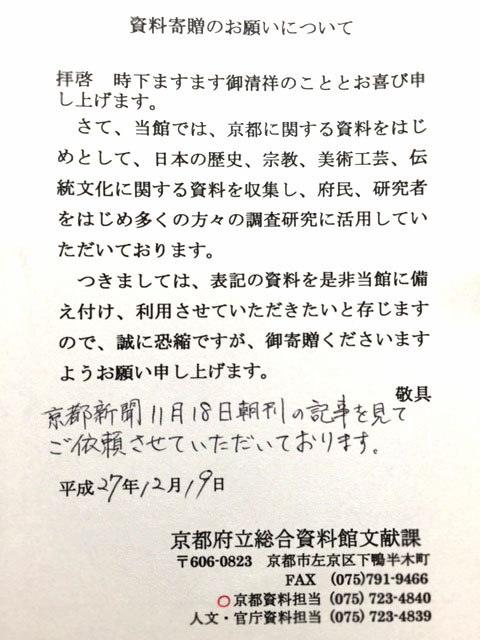 資料寄贈のお願いについて
拝啓　時下ますます御清祥のこととお喜び申
し上げます。
　さて、当館では、京都に関する資料をはじ
めとして、日本の歴史、宗教、美術工芸、伝
統文化に関する資料を収集し、府民、研究者
をはじめ多くの方々の調査研究に活用してい
ただいております。
　つきましては、表記の資料を是非当館に備
え付け、利用させていただきたいと存じます
ので、誠に恐縮ですが、御寄贈くださいます
ようお願い申し上げます。
敬具
京都新聞11月18日朝刊の記事を見て
ご依頼させていただいております。
平成27年12月19日
京都府立総合資料館文献課
〒606-0823　京都市左京区下鴨半木町
FAX　(075)791-9466
○京都資料担当　(075) 723-4840
人文・官庁資料担当　(075) 723-4839